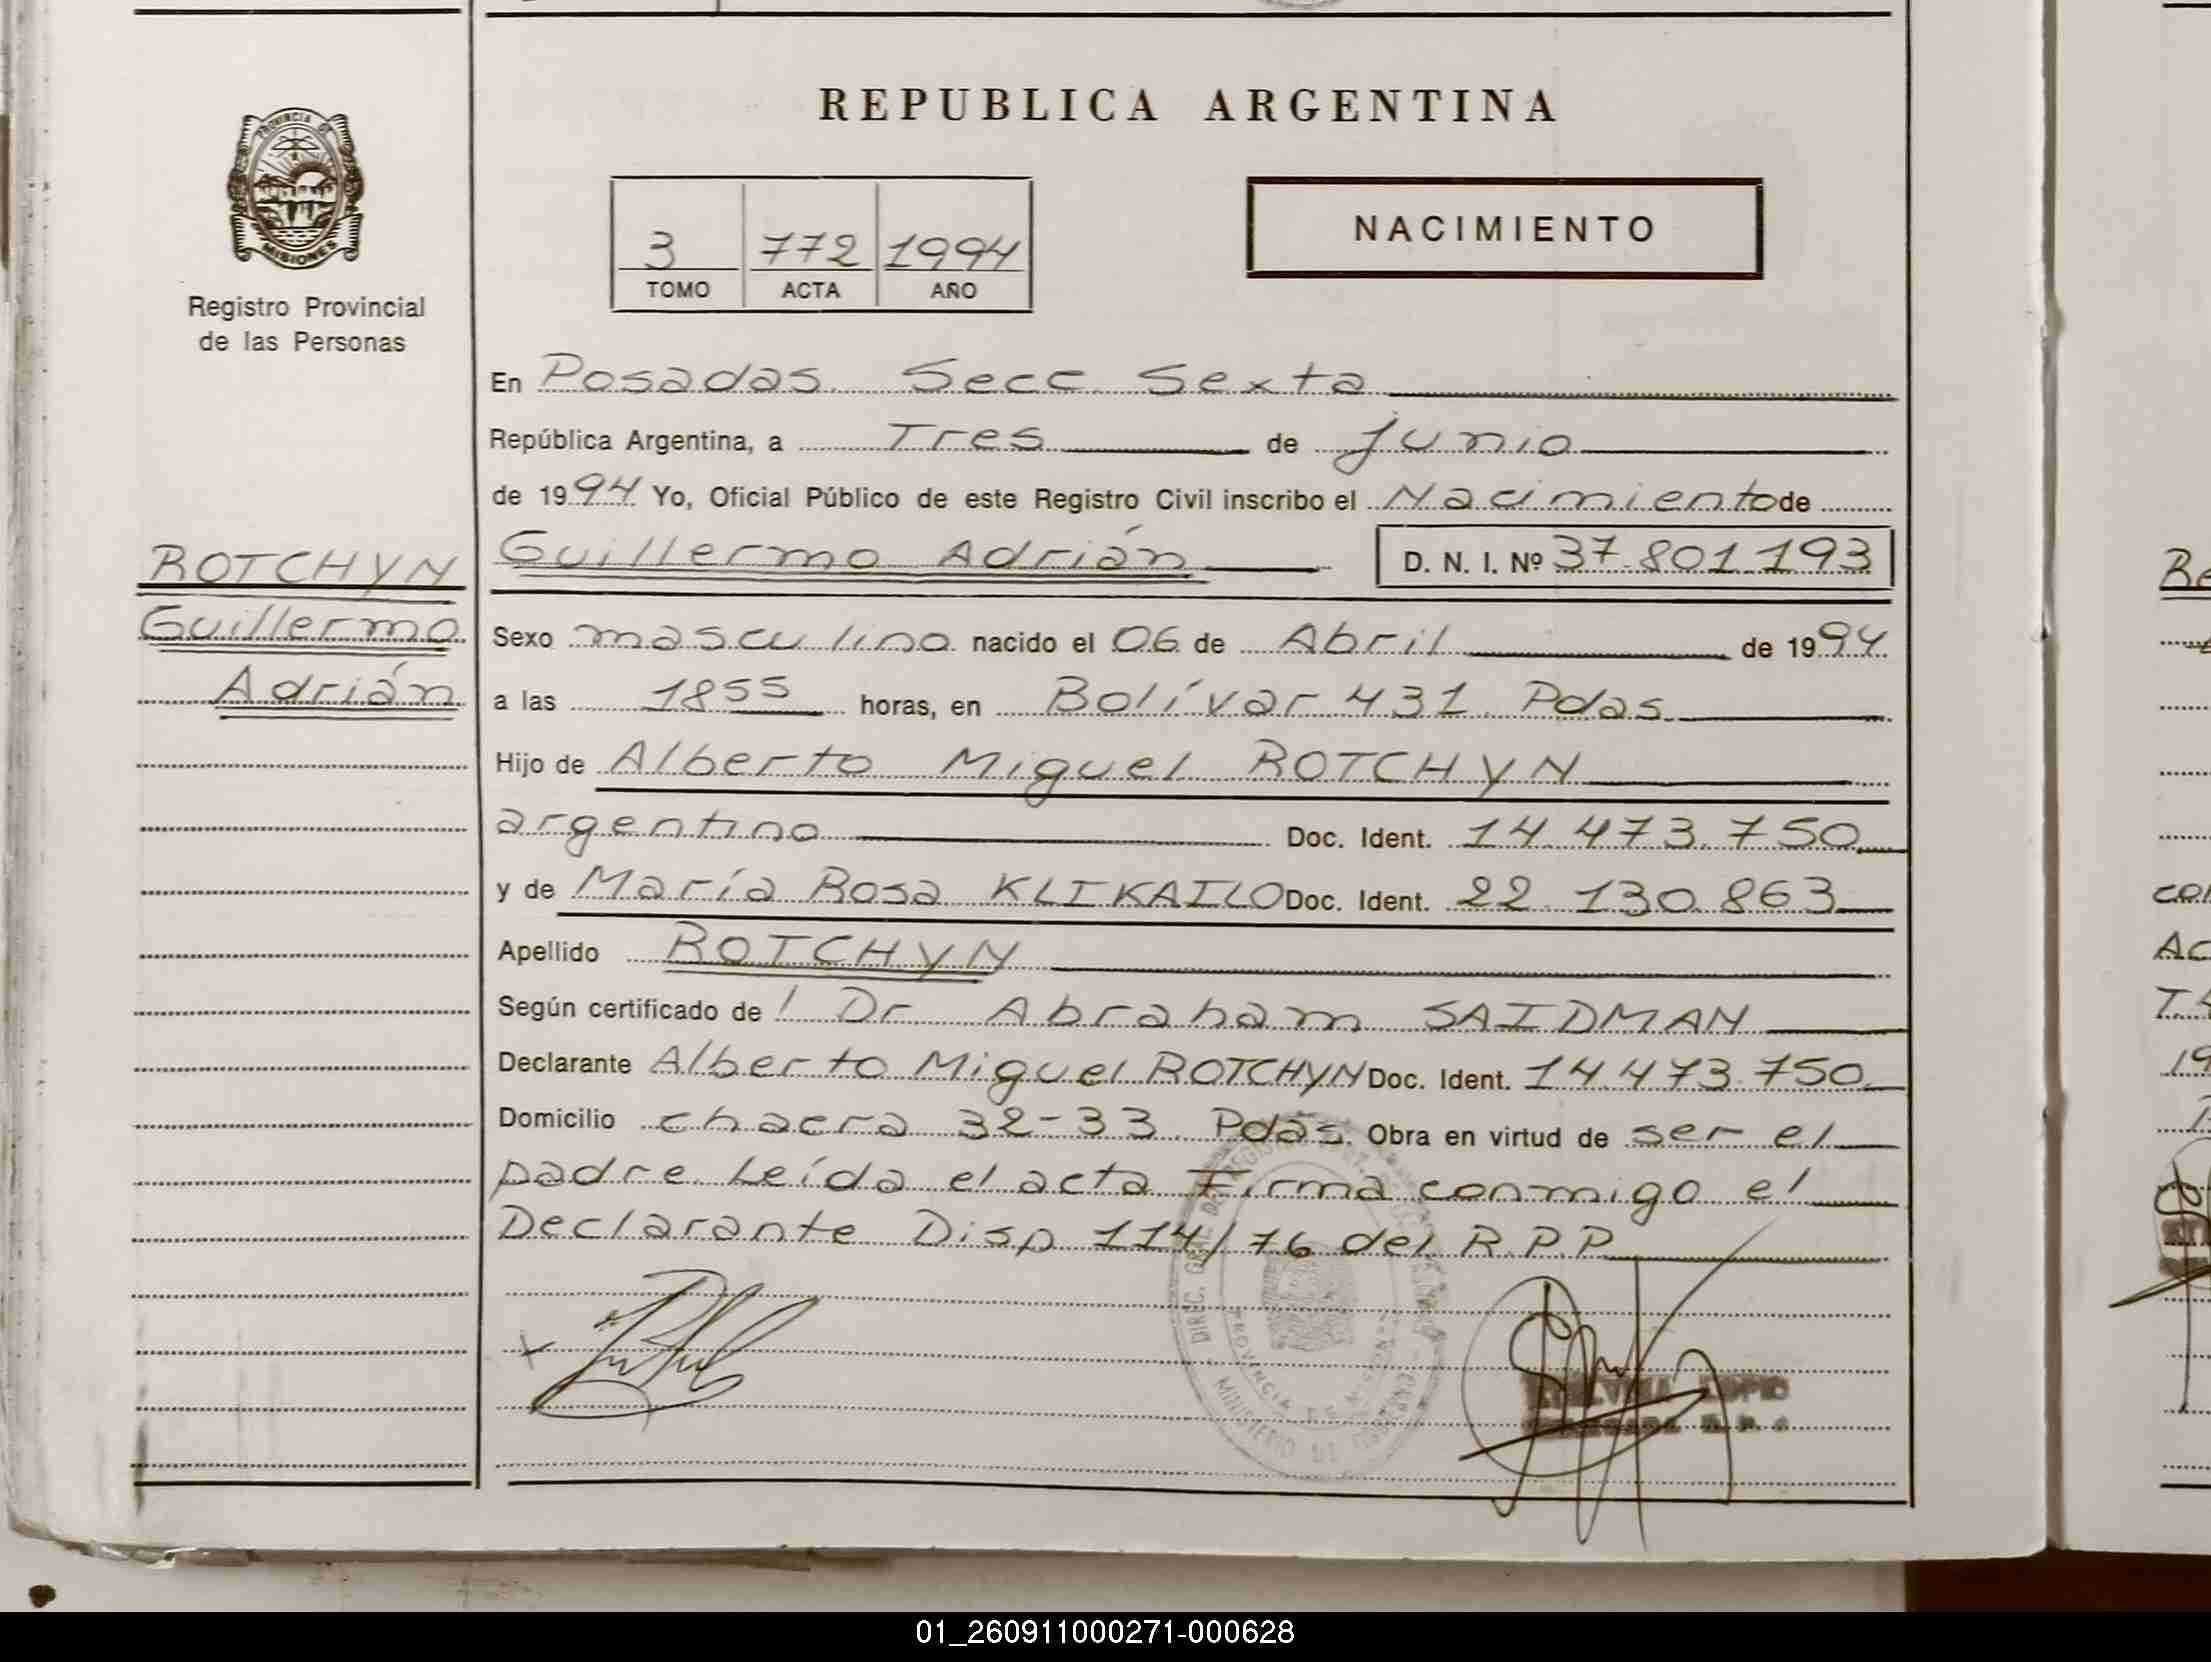 PROVINCIA DE
MISIONES
Registro Provincial
de las Personas
REPUBLICA ARGENTINA
3 772 1994
TOMO ACTA AÑO
NACIMIENTO
En Posadas. Secc. Sexta
República Argentina, a Tres de Junio
de 1994 Yo, Oficial Público de este Registro Civil inscribo el Nacimiento de
ROTCHYN
Guillermo
Adrián
Guillermo Adrián D. N. I. Nº 37.801.193
Sexo masculino nacido el 06 de Abril de 1994
a las 18 55 horas, en Bolívar 431. Pdas.
Hijo de Alberto Miguel ROTCHYN
argentino Doc. Ident. 14.473.750
y de María Rosa KLIKAILO Doc. Ident. 22.130.863
Apellido ROTCHYN
Según certificado de l Dr. Abraham SAIDMAN
Declarante Alberto Miguel ROTCHYN Doc. Ident. 14.473.750
Domicilio chacra 32-33. Pdas. Obra en virtud de ser el
padre. Leída el acta Firma conmigo el
Declarante Disp 114/76 del R.P.P
MINISTERIO DE
PROVINCIA
01_260911000271-000628